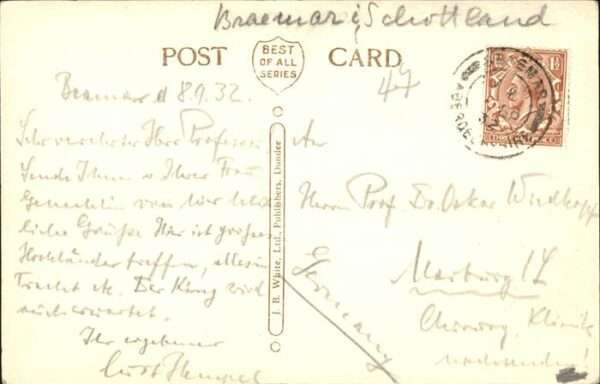 Braemar i. Schottland
POST CARD
BEST
OF ALL
SERIES
47
Braemar 8.9.32.
Sehr verehrter Herr Professor
Sende Ihnen u Ihrer Frau
Gemahlin von hier
liche Grüße Hier ist großes
Hochländer treffen, alles in
Tracht etc. Der König wird
auch erwartet.
Ihr ergebener
Curt Hempel
J. B. White, Ltd., Publishers, Dundee
An
Herrn Prof Dr. Oskar
Marburg / L
Chirurg. Klinik
nachsenden!
Germany